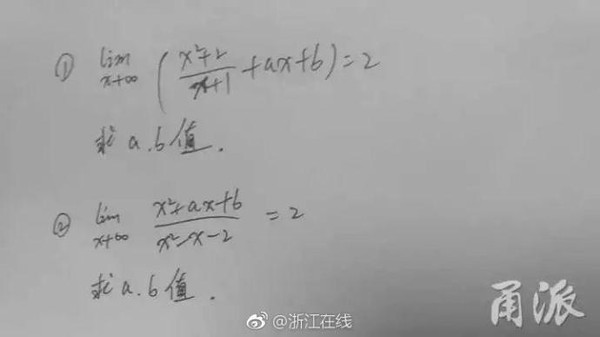 ① lim x→∞ (x²+2/x+1 + ax+b)=2
求 a.b 值.
② lim x→∞ x²+ax+b/x²-x-2 =2
求 a.b 值.
@浙江在线
甬派